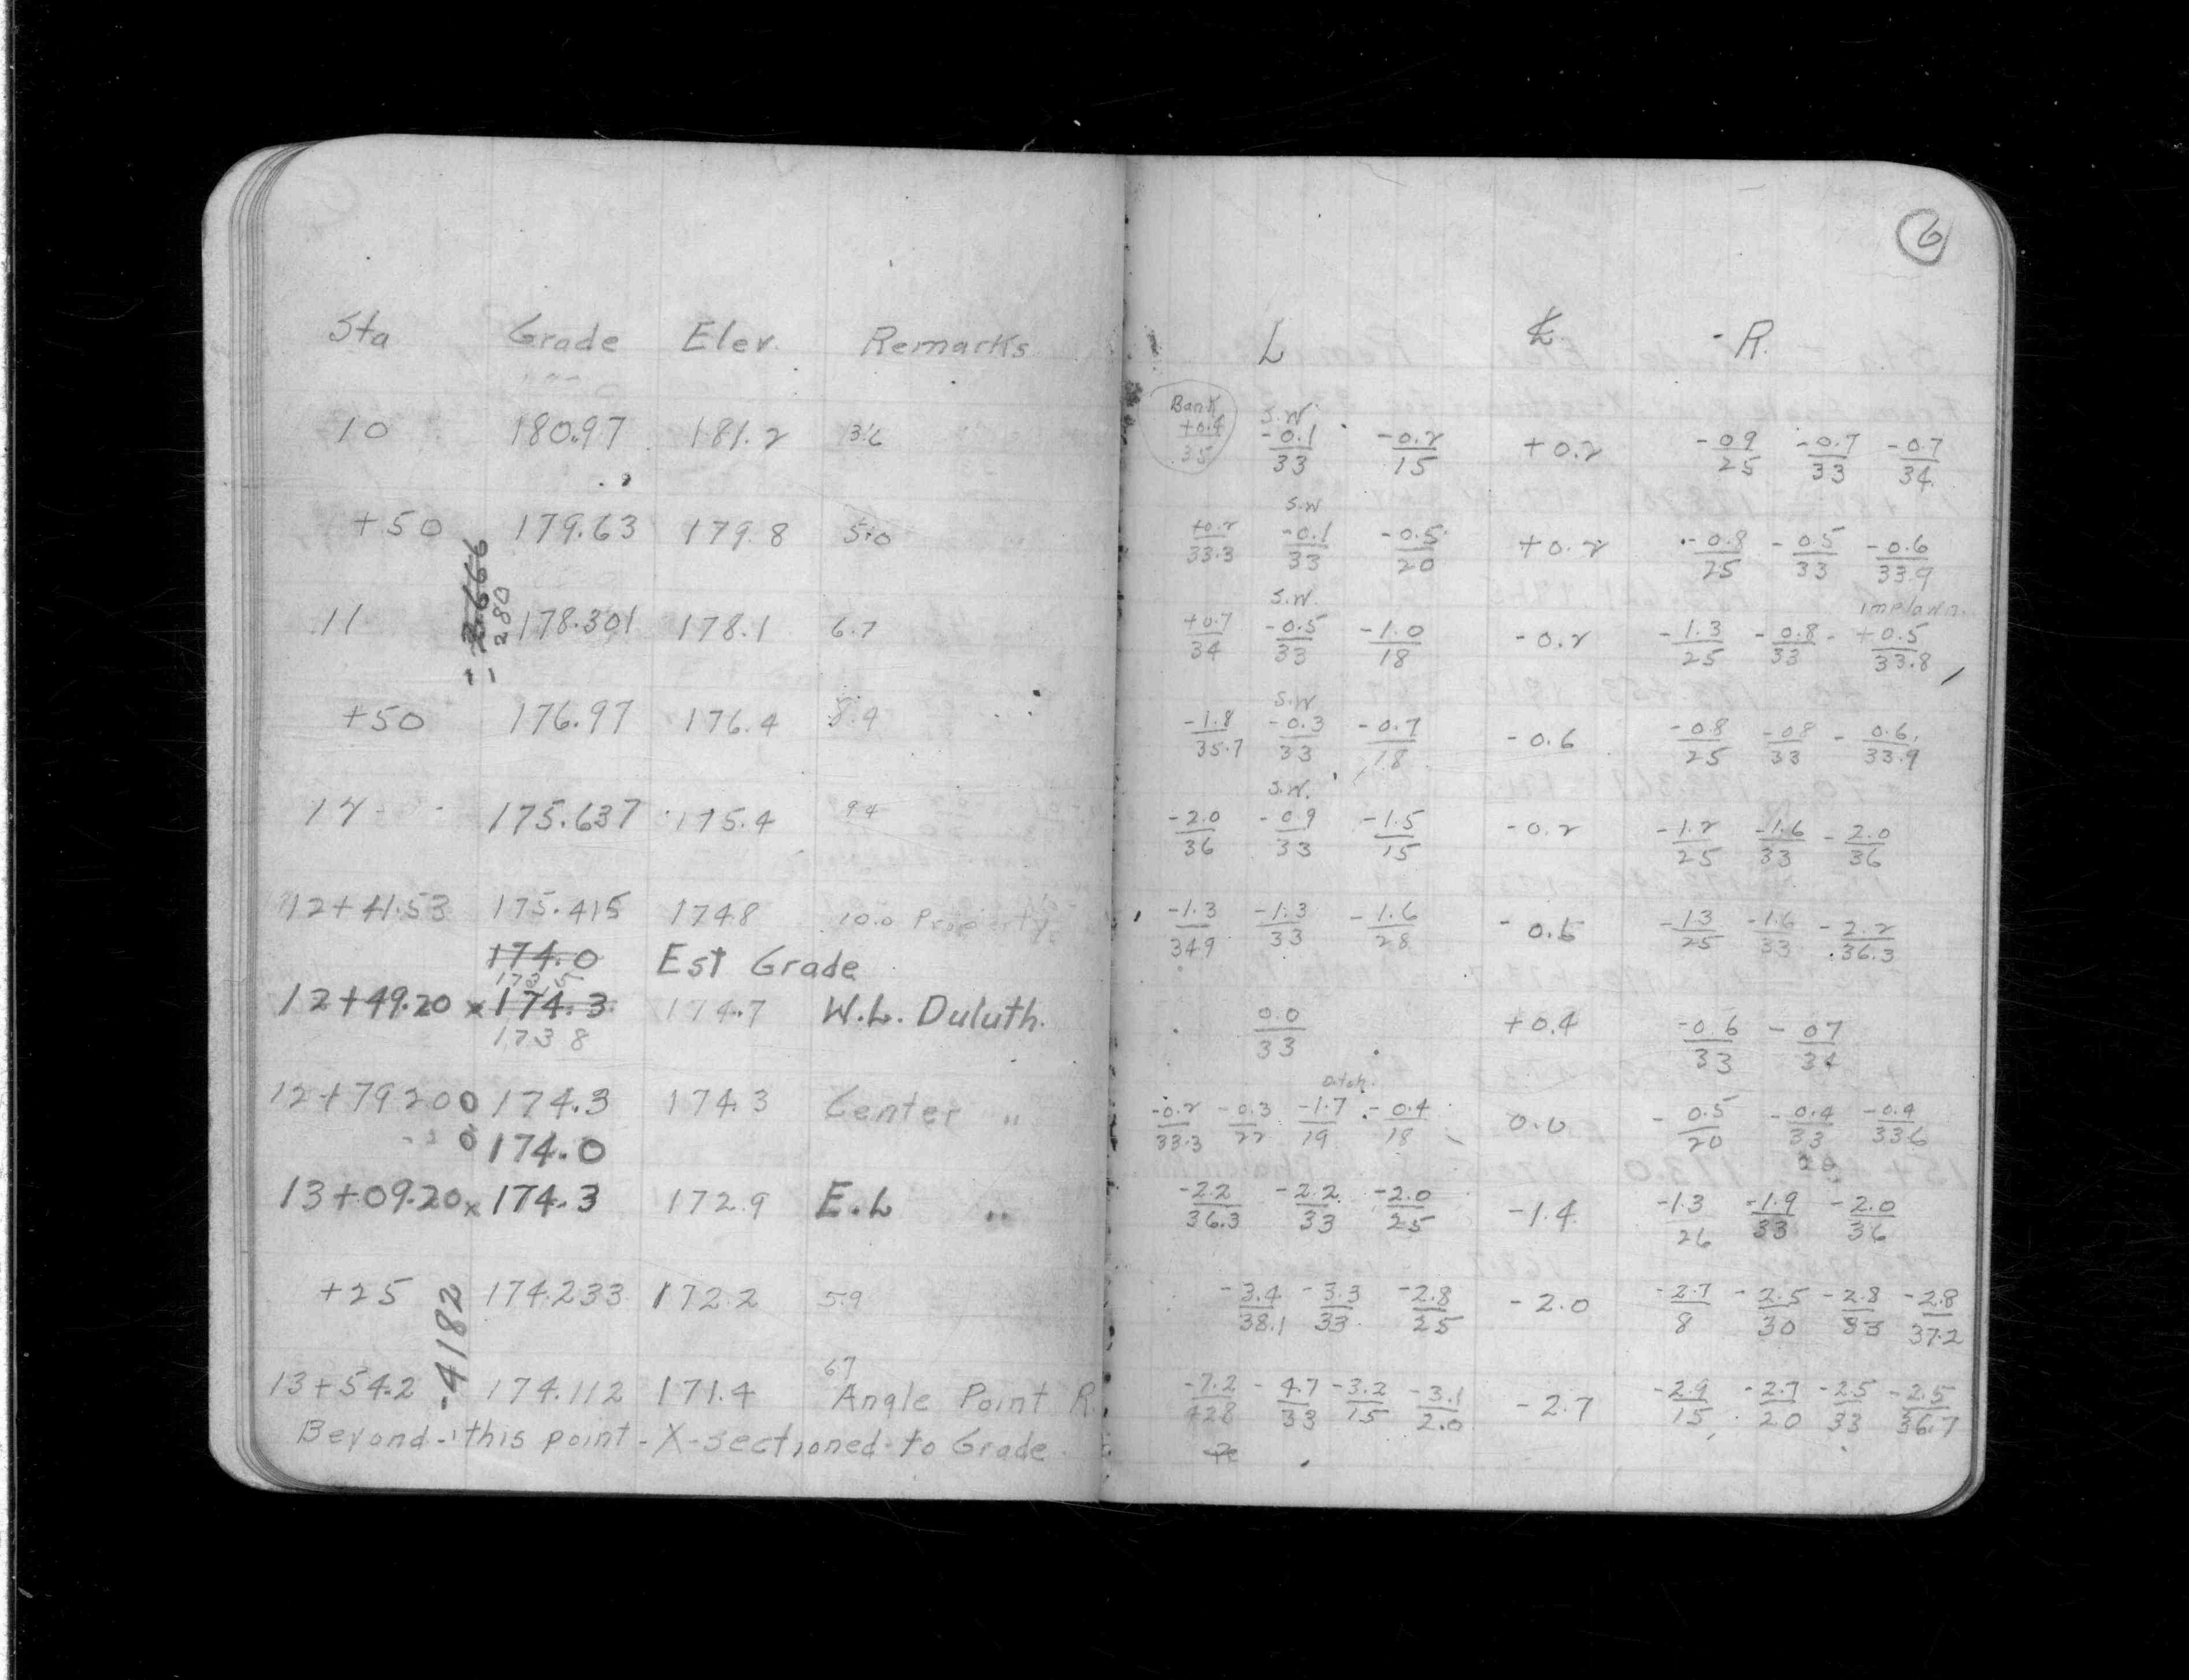 Sta Grade Elev. Remarks
10 180.97 181.2 3.6
+50 179.63 179.8 5.0
11 178.301 178.1 6.7
+50 176.97 176.4 8.4
12 175.637 175.4 9.4
12+41.53 175.415 174.8 10.0 Property
174.0 Est Grade
173.5
12+49.20 x 174.3 174.7 W.L. Duluth.
173.8
12+79.200 174.3 174.3 Center "
0 174.0
13+09.20 x 174.3 172.9 E.L "
+25 174.233 172.2 5.9
67
13+54.2 174.112 171.4 Angle Point R.
Beyond - this point - X-sectioned - to Grade.
- 2.666
- 280
-.4182
6
L ℄ R.
Bank S.W.
+0.4/35 -0.1/33 -0.2/15 +0.2 -0.9/25 -0.7/33 -0.7/34
S.W
+0.2/33.3 -0.1/33 -0.5/20 +0.2 -0.8/25 -0.5/33 -0.6/33.9
S.W. imp lawn.
+0.7/34 -0.5/33 -1.0/18 -0.2 -1.3/25 -0.8/33 +0.5/33.8
S.W
-1.8/35.7 -0.3/33 -0.7/18 -0.6 -0.8/25 -0.8/33 -0.6/33.9
S.W.
-2.0/36 -0.9/33 -1.5/15 -0.2 -1.2/25 -1.6/33 -2.0/36
-1.3/34.9 -1.3/33 -1.6/28 -0.6 -1.3/25 -1.6/33 -2.2/36.3
0.0/33 +0.4 -0.6/33 -0.7/34
ditch.
-0.2/33.3 -0.3/22 -1.7/19 -0.4/18 0.0 -0.5/20 -0.4/33 -0.4/33.6
20
-2.2/36.3 -2.2/33 -2.0/25 -1.4 -1.3/26 -1.9/33 -2.0/36
-3.4/38.1 -3.3/33 -2.8/25 -2.0 -2.7/8 -2.5/30 -2.8/33 -2.8/37.2
-7.2/42.8 -4.7/33 -3.2/15 -3.1/2.0 -2.7 -2.9/15 -2.7/20 -2.5/33 -2.5/36.7